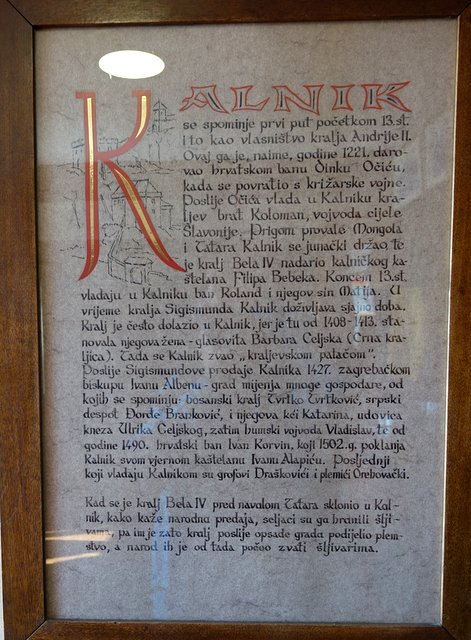 KALNIK
se spominje prvi put početkom 13.st.
i to kao vlasništvo kralja Andrije II.
Ovaj ga je, naime, godine 1221. daro-
vao hrvatskom banu Oinku Očiću,
kada se povratio s križarske vojne.
Poslije Očića vlada u Kalniku kra-
ljev brat Koloman, vojvoda cijele
Slavonije. Prigom provale Mongola
i Tatara Kalnik se junački držao, te
je kralj Bela IV nadario kalničkog ka-
štelana Filipa Bebeka. Koncem 13.st.
vladaju u Kalniku ban Roland i njegov sin Matija. U
vrijeme kralja Sigismunda Kalnik doživljava sjajno doba.
Kralj je često dolazio u Kalnik, jer je tu od 1408-1413. sta-
novala njegova žena - glasovita Barbara Celjska (Crna kra-
ljica). Tada se Kalnik zvao „kraljevskom palačom".
Poslije Sigismundove prodaje Kalnika 1427. zagrebačkom
biskupu Ivanu Albenu - grad mijenja mnoge gospodare, od
kojih se spominju: bosanski kralj Tvrtko Tvrtković, srpski
despot Đorđe Branković, i njegova kći Katarina, udovica
kneza Ulrika Celjskog, zatim humski vojvoda Vladislav, te od
godine 1490. hrvatski ban Ivan Korvin, koji 1502.g. poklanja
Kalnik svom vjernom kaštelanu Ivanu Alapiću. Posljednji
koji vladaju Kalnikom su grofovi Draškovići i plemići Orehovački.
Kad se je kralj Bela IV pred navalom Tatara sklonio u Kal-
nik, kako kaže narodna predaja, seljaci su ga hranili šlji-
vama, pa im je zato kralj poslije opsade grada podijelio plem-
stvo, a narod ih je od tada počeo zvati šljivarima.